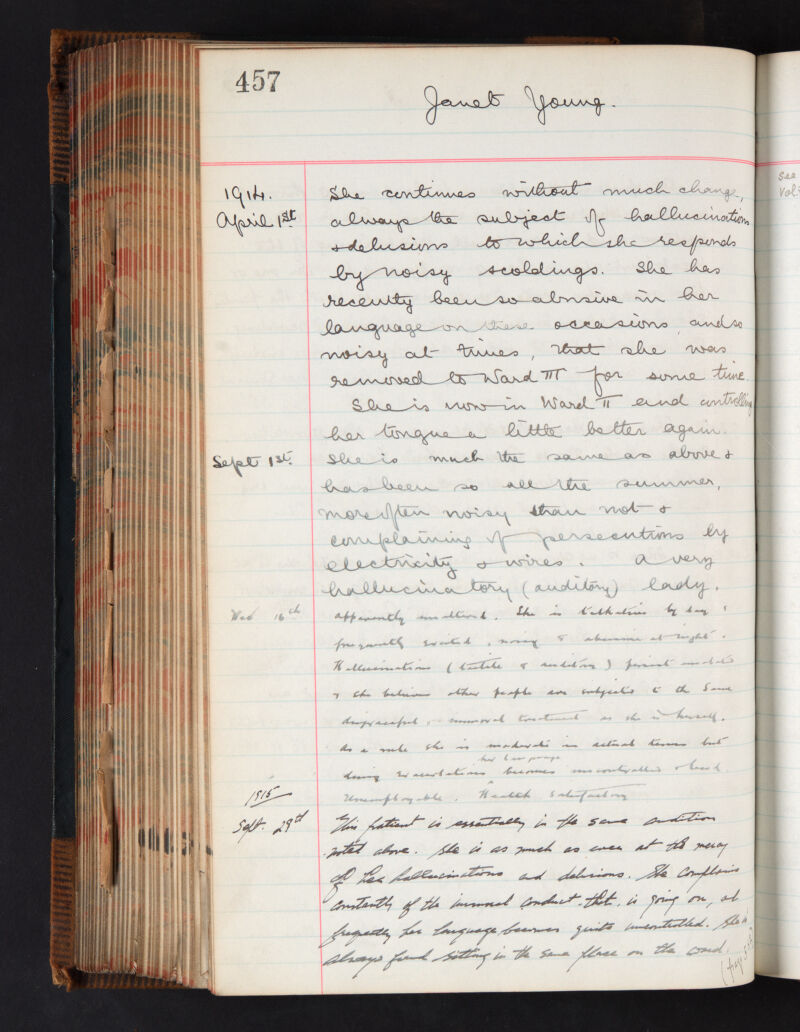 457
Janet Young.
1914. She continues without much change,
April 1st always the subject of hallucinations
& delusions to which she responds
by noisy scoldings. She has
recently been so abusive in her
language on these occasions, and so
noisy at times, that she was
removed to Ward III for some time.
She is now in Ward II and controlling
her tongue a little better again.
Sept 1st. She is much the same as above &
has been so all the summer,
more often noisy than not &
complaining of persecutions by
electricity & wires. A very
hallucinatory (auditory) lady.
16th apparently unaltered. She is talkative by day &
frequently excited, noisy & abusive at night.
Hallucinations (tactile & auditory) persist
& she believes other people are subjected to the same
disgraceful & immoral treatment as she is herself.
As a rule she is moderate in actual terms but
her language
during exacerbations becomes uncontrolled & loud
1915 Unemployable. Health satisfactory
Sept. 29th This patient is essentially in the same condition
noted above. She is as much as ever at the mercy
of her hallucinations and delusions. She complains
constantly of the immoral conduct that is going on, and
frequently her language becomes quite uncontrolled. She is
always found sitting in the same place on the ward.
(page
See
Vol.